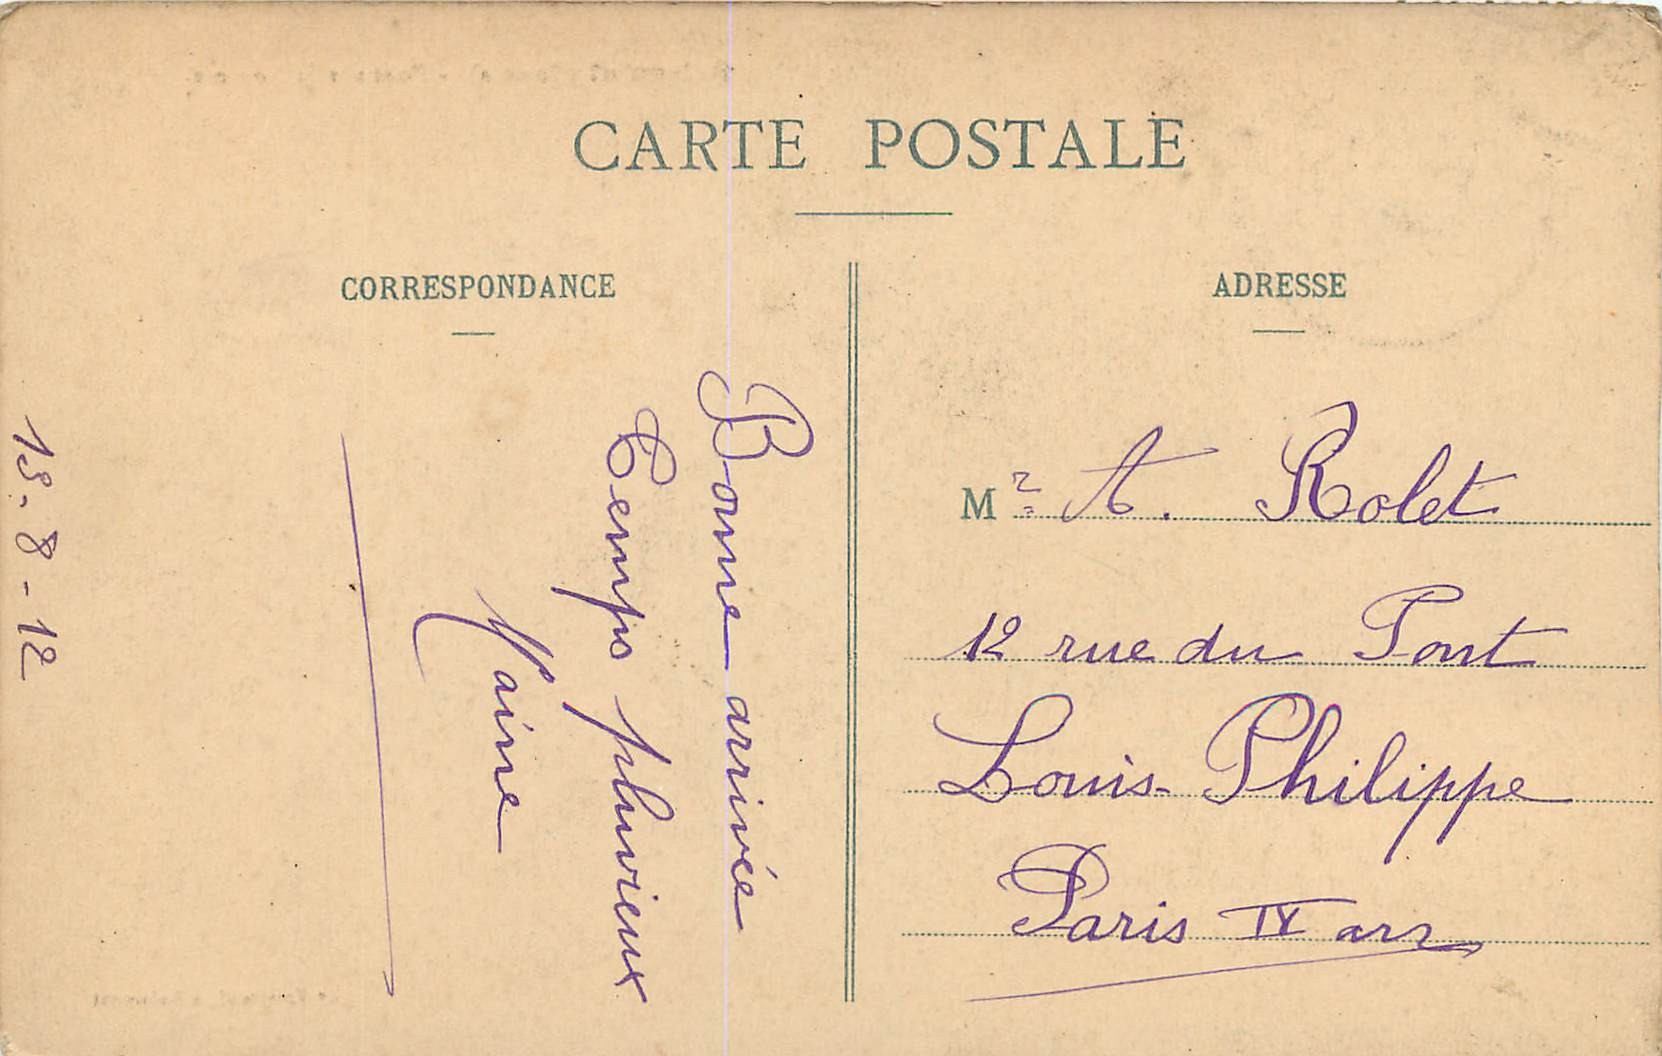 CARTE POSTALE
CORRESPONDANCE
ADRESSE
Bonne arrivée
Temps pluvieux
13-8-12
Mr A. Rolet
12 rue du Pont
Louis-Philippe
Paris IV arr